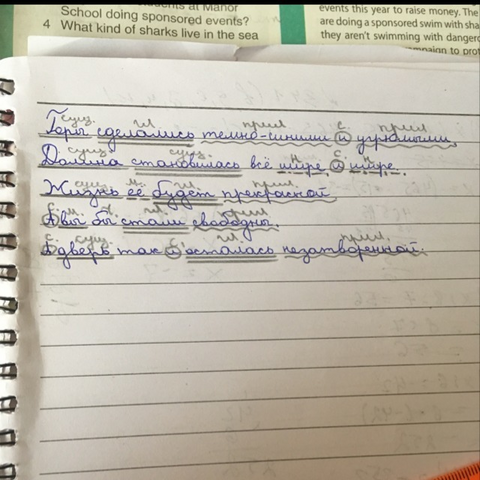 students at Manor
School doing sponsored events?
4 What kind of sharks live in the sea
events this year to raise money. The
are doing a sponsored swim with sha
they aren't swimming with dangero
campaign to prot
сущ. гл. прил. с. прил.
Горы сделались темно-синими и угрюмыми.
сущ. гл. н. с. н.
Долина становилась всё шире и шире.
сущ. м. гл. прил.
Жизнь её будет прекрасной
с. м. ч. гл. прил.
А вы бы стали свободны.
с. сущ. с. гл. прил.
А дверь так и осталась незатворенной.